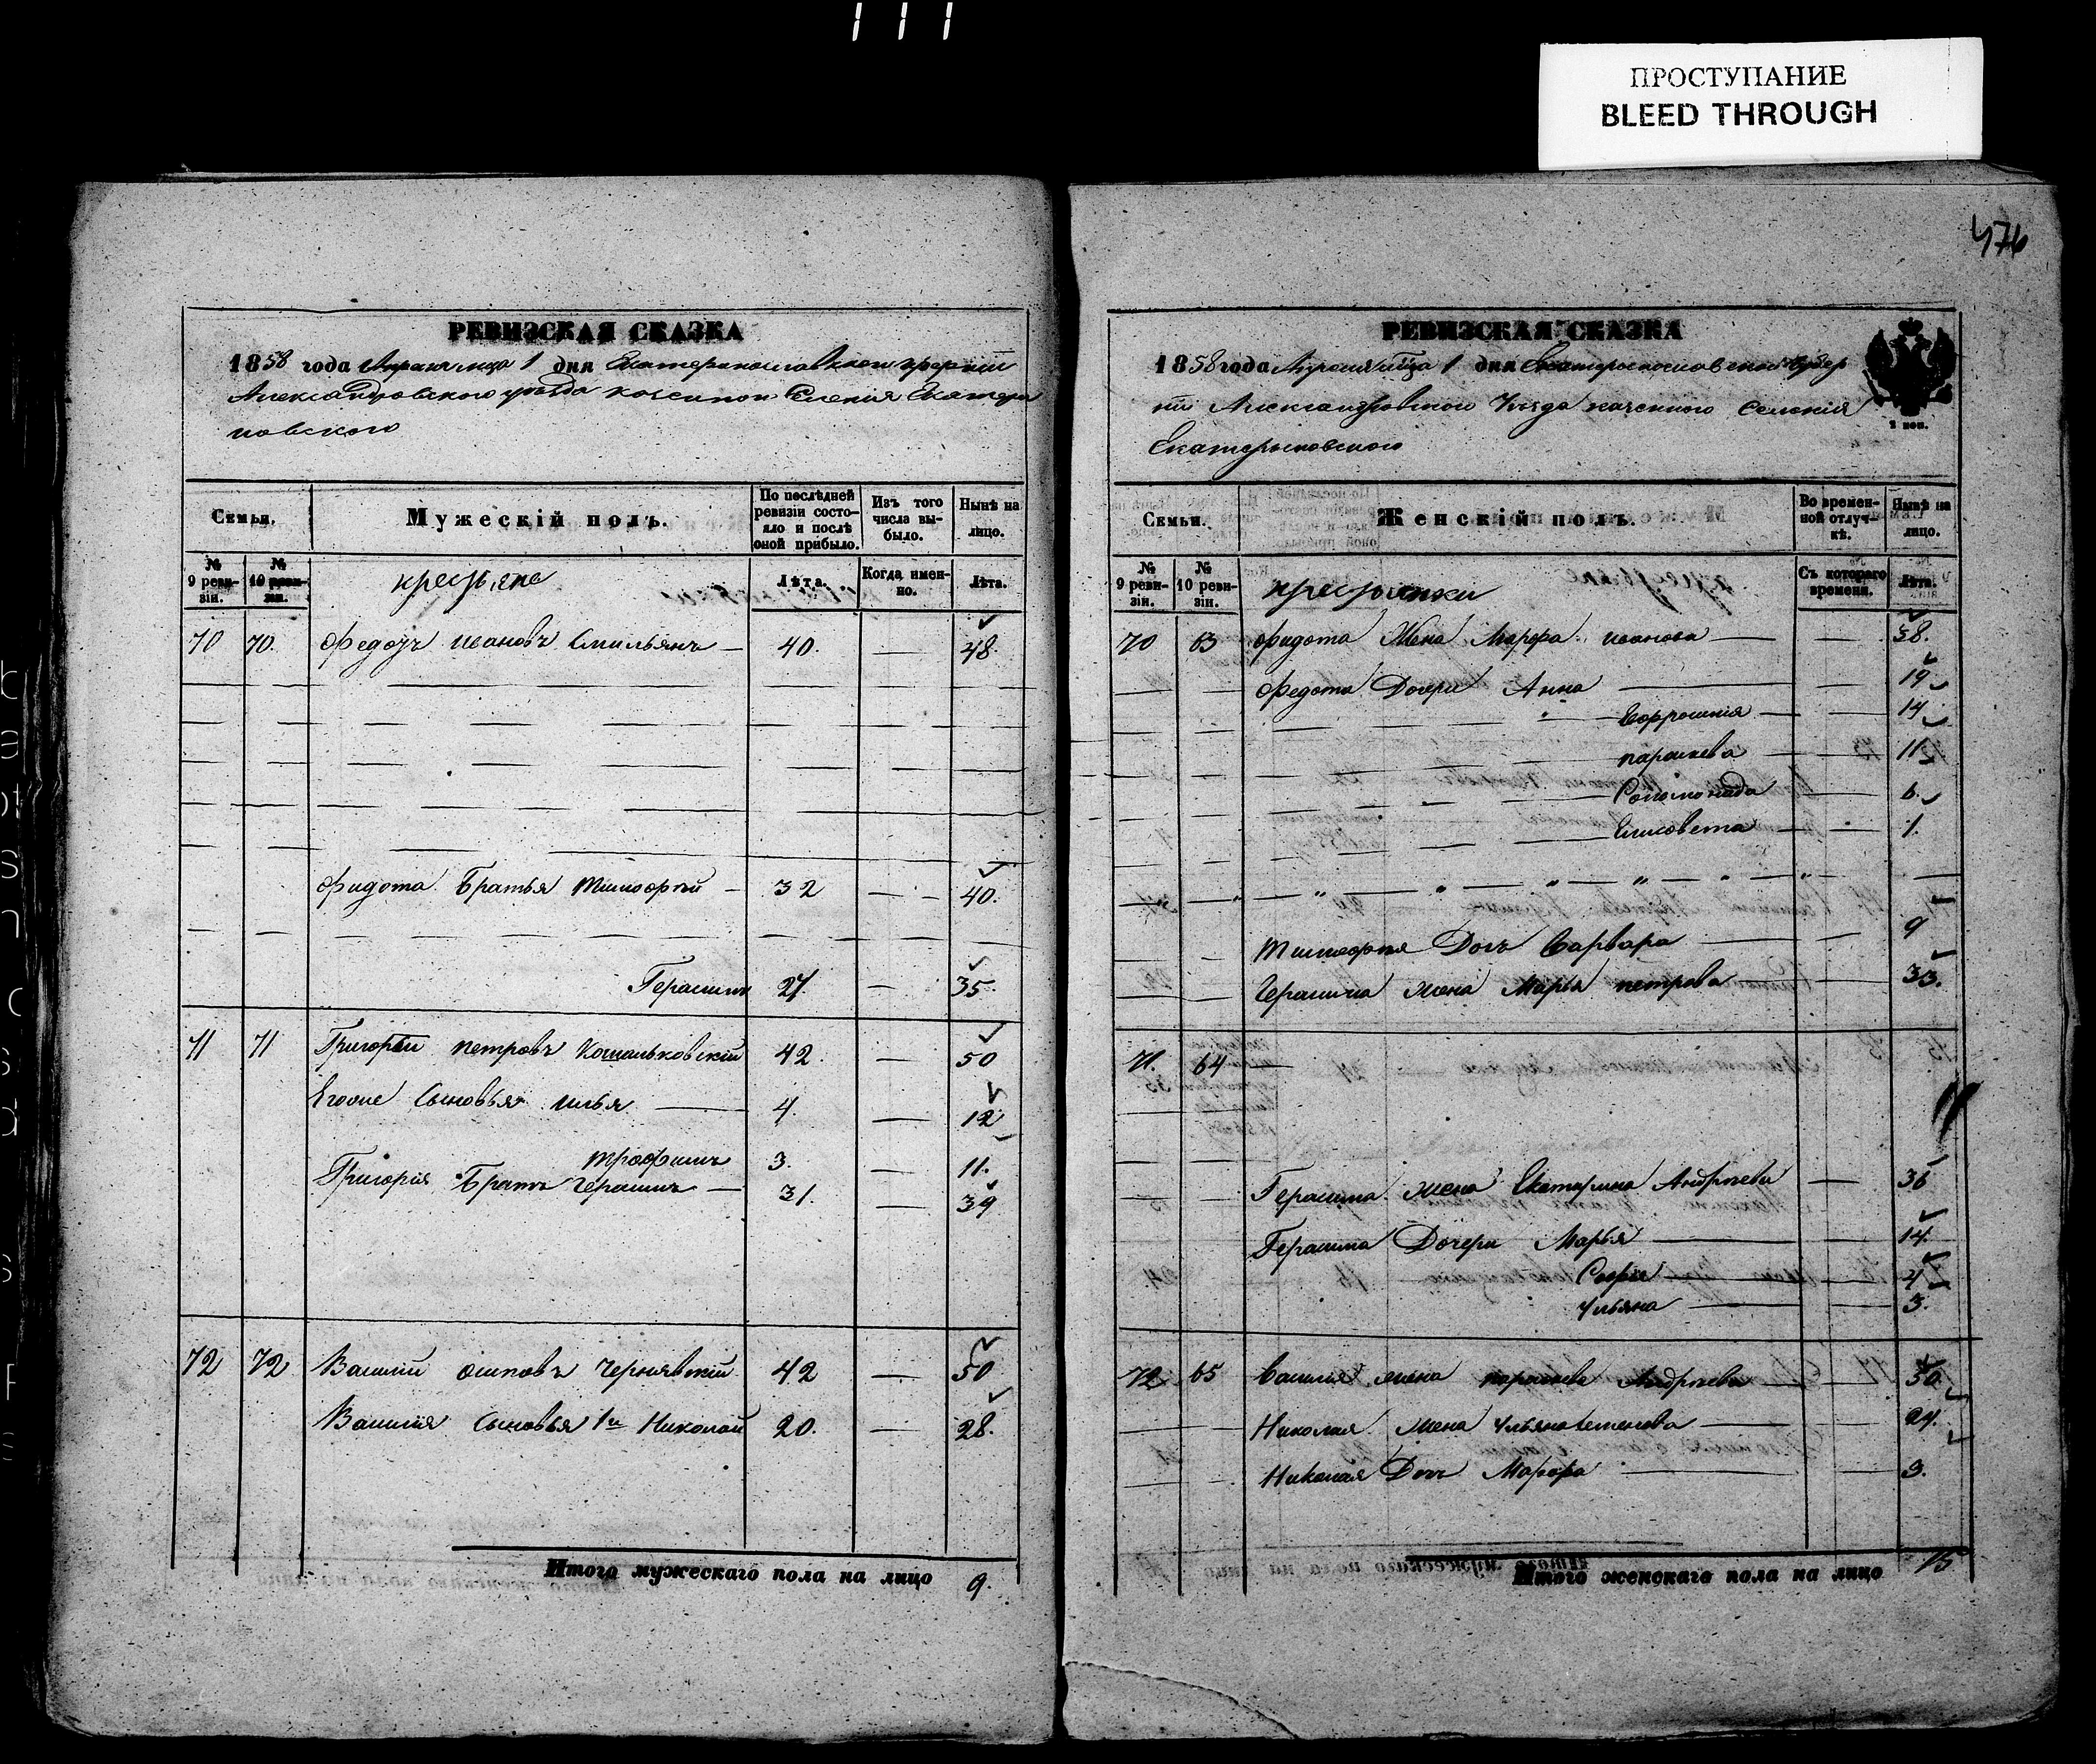 ПРОСТУПАНИЕ
BLEED THROUGH
476
РЕВИЗСКАЯ СКАЗКА
1858 года Апреля мца 1 дня Екатеринославской губернии
Александровского уезда казенного Селения Екатери
новского
Семьи. Мужескій полъ. По послѣдней ревизіи состояло и послѣ оной прибыло. Изъ того числа выбыло. Нынѣ на лицо.
№ 9 ревизіи. № 10 ревизіи. крестьяне Лѣта. Когда именно. Лѣта.
70 70. Федотъ Ивановъ Смильянъ — 40. — 48.
Федота Братья Тимофѣй — 32 — 40.
Герасимъ 27. — 35.
71 71 Григорій Петровъ 42. — 50
Егоъ Сыновья Илья — 4. — 12
Трофимъ 3. — 11.
Григорія Братъ Герасимъ — 31. — 39
72 72 Василій Осиповъ Чернявскій 42 — 50
Василія Сыновья 1й Николай 20. — 28.
Итого мужескаго пола на лицо 9.
РЕВИЗСКАЯ СКАЗКА
1858 года Апреля мца 1 дня Екатеринославской Губер
ніи Александровского Уезда казенного Селенія
Екатериновского
Семьи. Женскій полъ. Во временной отлучкѣ. Нынѣ на лицо.
№ 9 ревизіи. № 10 ревизіи. крестьянки Съ котораго времени. Лѣта.
70 63 Федота Жена Марфа Иванова — — 38.
Федота Дочери Анна — — 19
Ефросинія — — 14
Параскева — — 11
Соломонида — — 6.
Елисовета — — 1.
Тимофея Дочь Варвара — — 9
Герасима жена Марья Петрова — — 33.
71. 64 —
Герасима жена Екатерина Андреева — 36
Герасима Дочери Марья — — 14
Софія — — 4
Ульяна — — 3.
72 65 Василія жена Параскева Андреева — — 50
Николая жена Ульяна Семенова — — 24.
Николая Дочь Марфа — — 3.
Итого женскаго пола на лицо 15